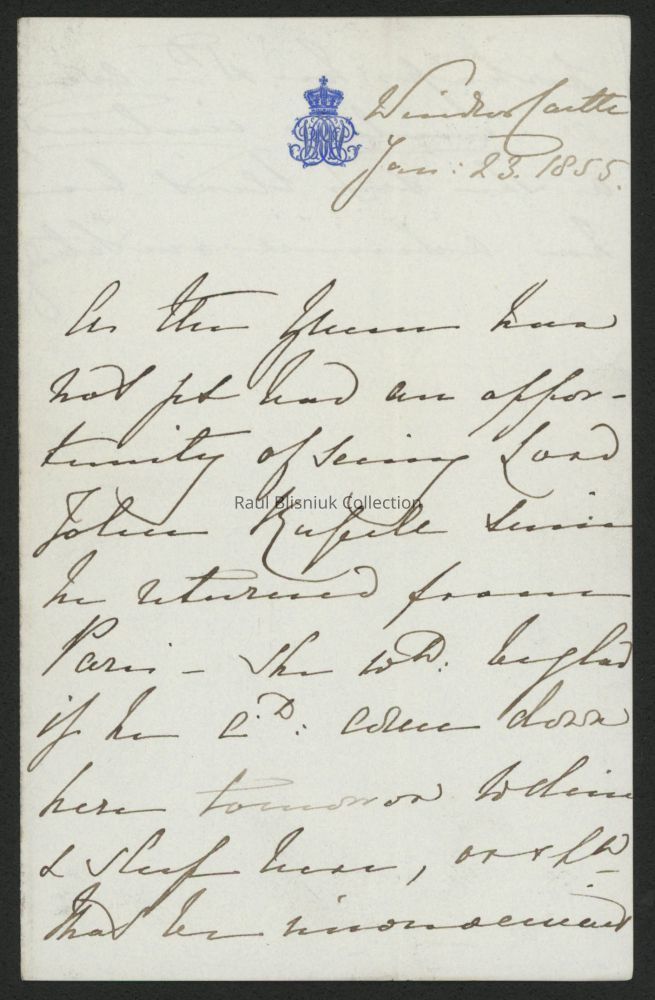 Windsor Castle
Jan: 23. 1855.
As the Queen has
not yet had an oppor-
tunity of seeing Lord
Raul Blisniuk Collection
John Russell since
he returned from
Paris – she wd: be glad
if he cd: come down
here tomorrow to dine
& sleep here, or shd
that be inconvenient